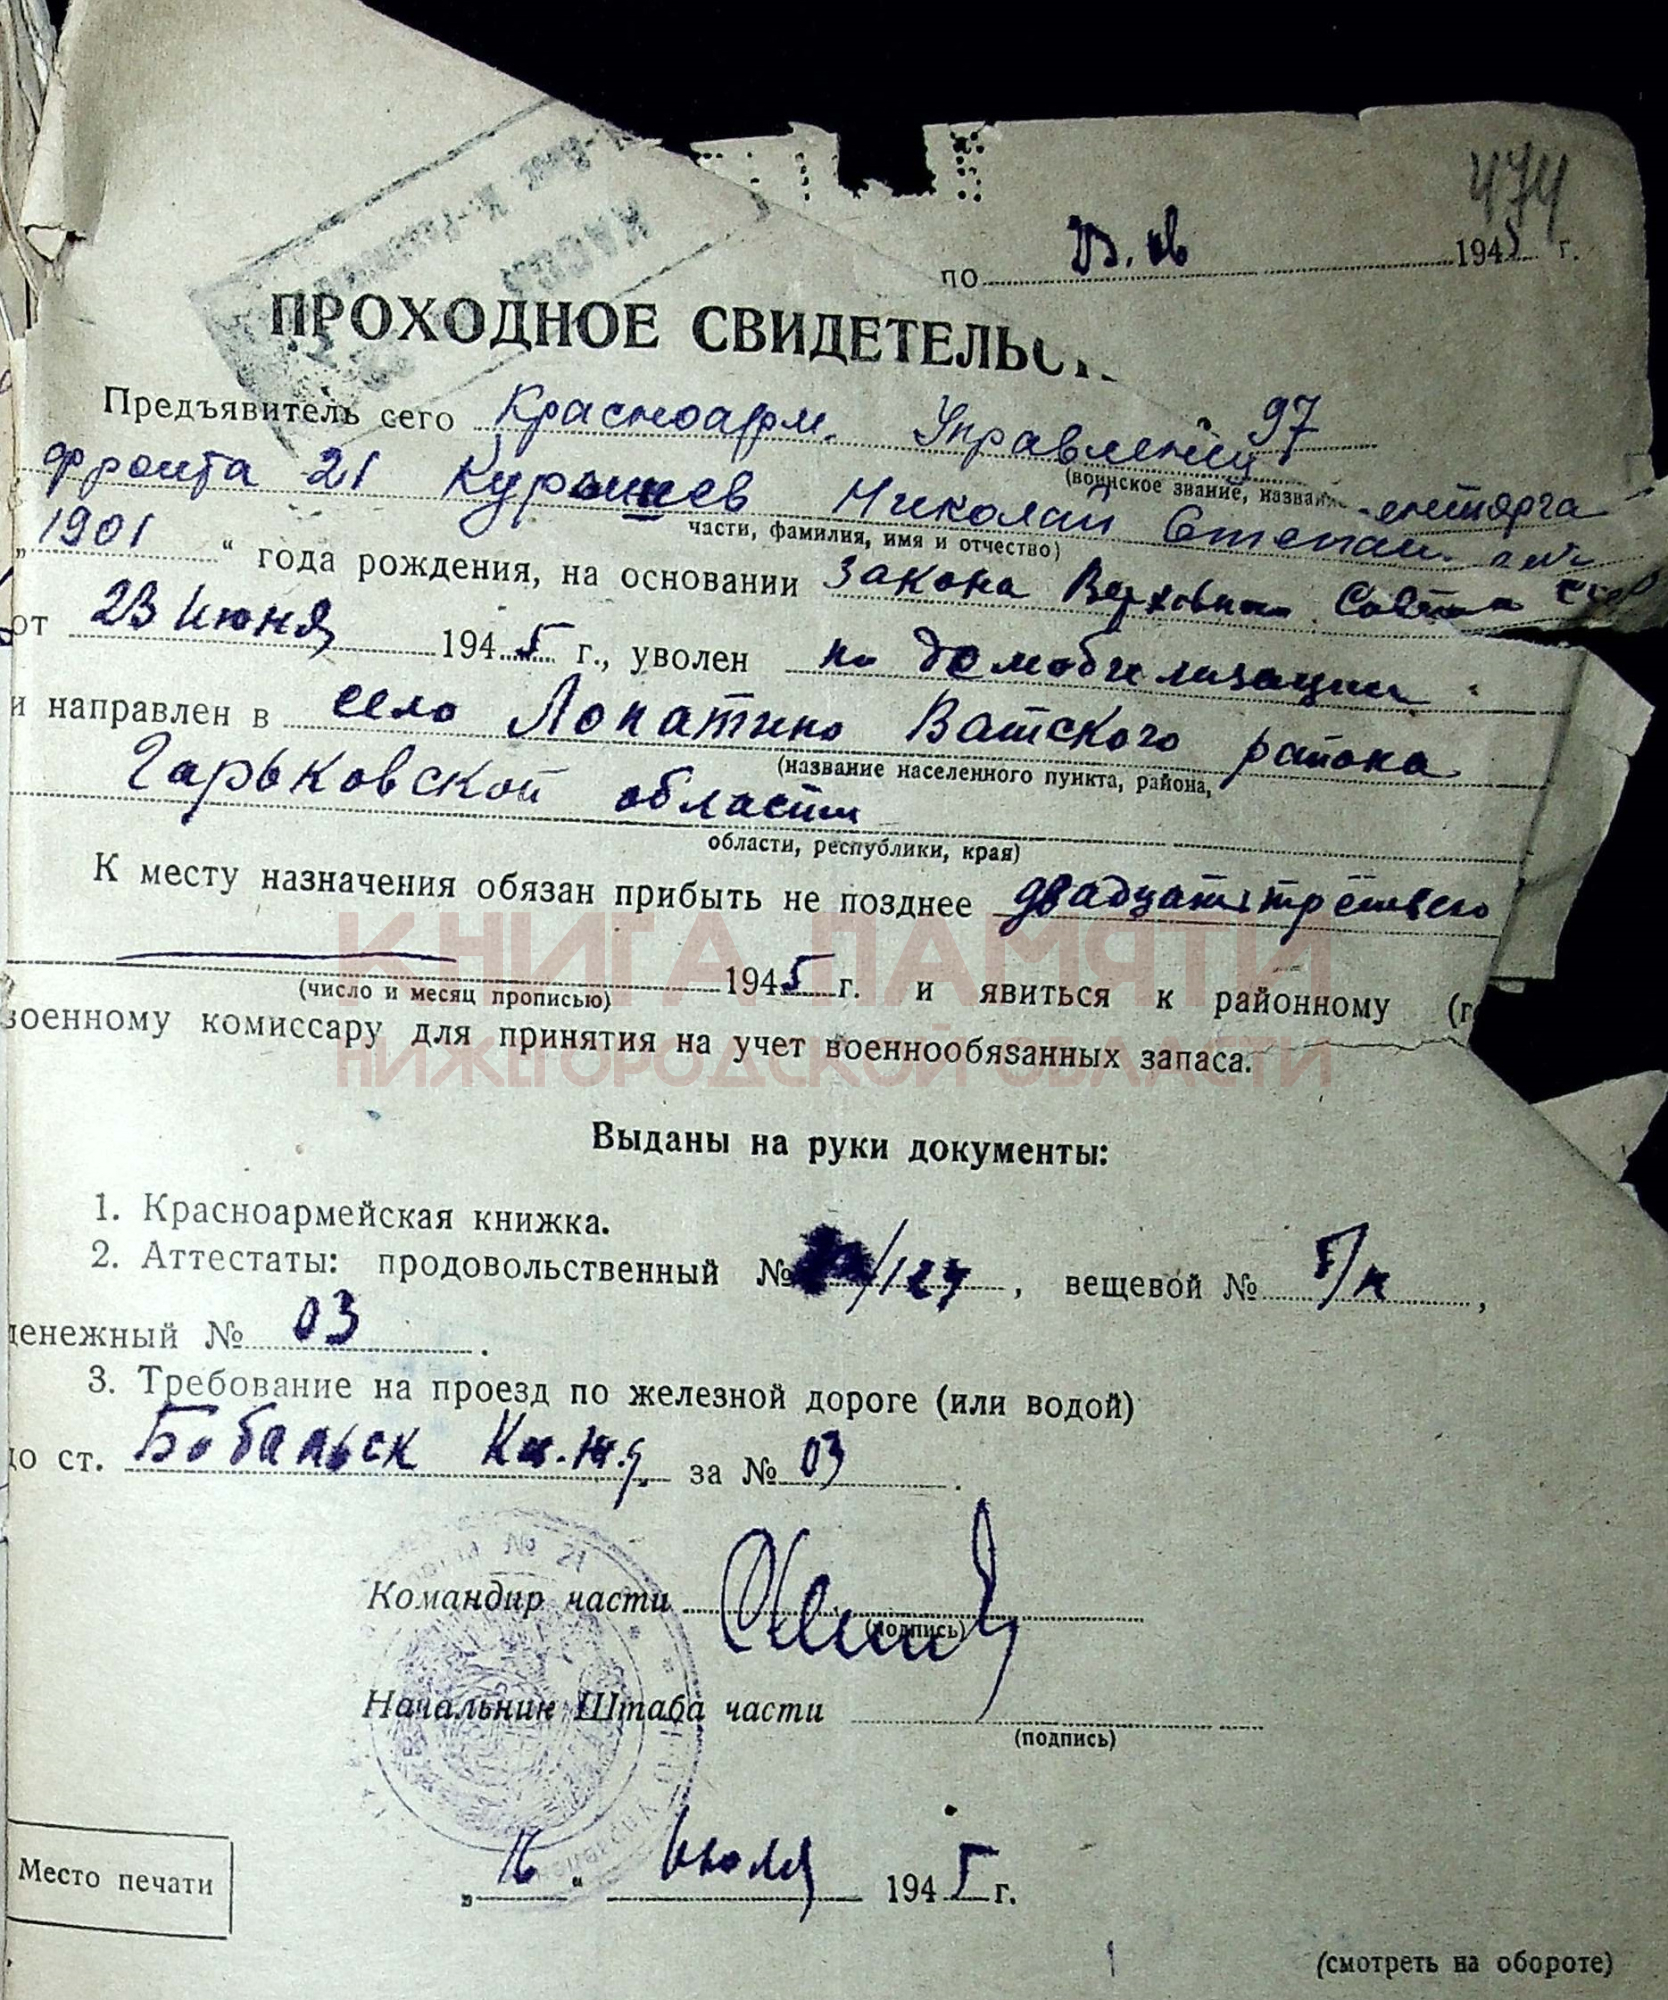 474
по 23. 08 1945 г.
ПРОХОДНОЕ СВИДЕТЕЛЬС
Предъявитель сего Красноарм. Управлени 97
(воинское звание, назван
фронта 21 Курышев Николай Степан.
части, фамилия, имя и отчество)
„1901“ года рождения, на основании закона Верховного Совета СССР
от 23 июня 1945 г., уволен по демобилизации
и направлен в село Лопатино Ватского района
(название населенного пункта, района,
Горьковской области
области, республики, края)
К месту назначения обязан прибыть не позднее двадцать третьего
1945 г. и явиться к районному (г
(число и месяц прописью)
военному комиссару для принятия на учет военнообязанных запаса.
КНИГА ПАМЯТИ
НИЖЕГОРОДСКОЙ ОБЛАСТИ
Выданы на руки документы:
1. Красноармейская книжка.
2. Аттестаты: продовольственный № /127, вещевой № б/н,
денежный № 03.
3. Требование на проезд по железной дороге (или водой)
до ст. Бобальск Каз.ж.д. за № 03.
№ 21
Командир части
(подпись)
Начальник Штаба части
(подпись)
Место печати
„16“ июля 1945 г.
(смотреть на обороте)